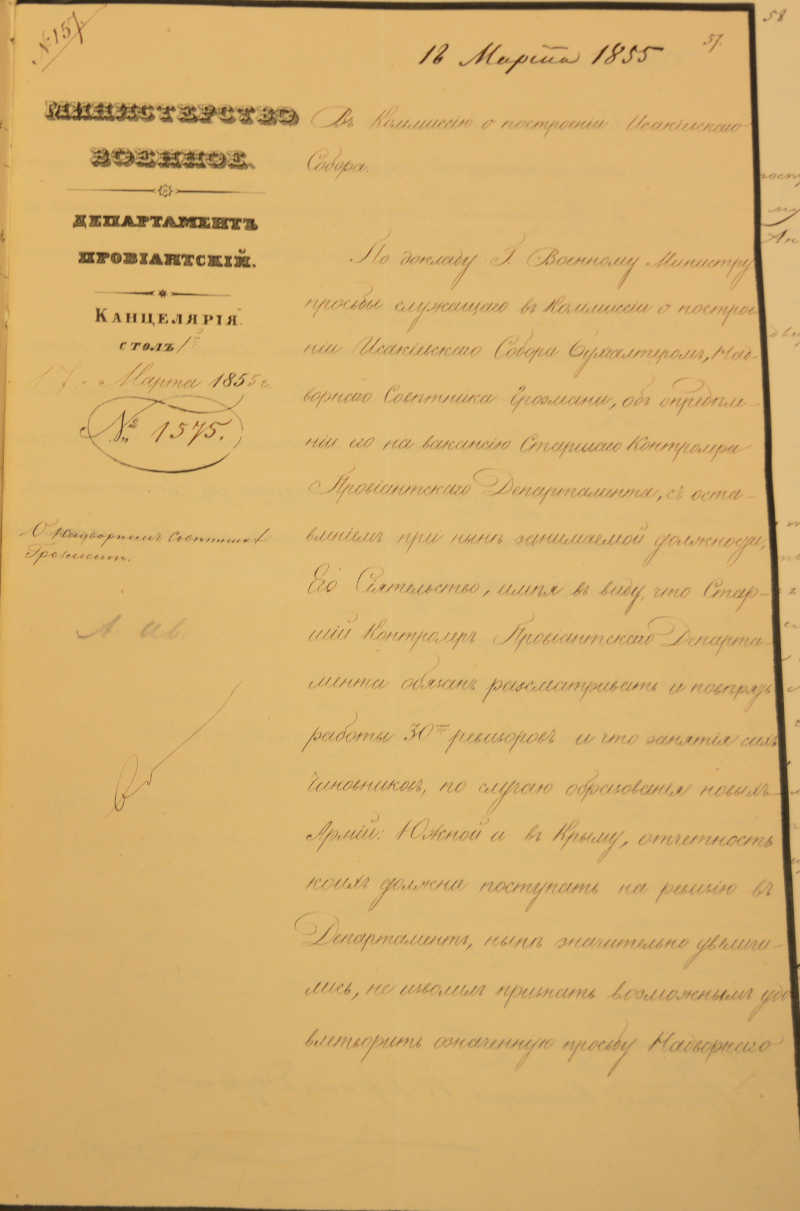 №157
18 Марта 1855
57.
58
МИНИСТЕРСТВО
ВОЕННОЕ.
ДЕПАРТАМЕНТЪ
ПРОВІАНТСКІЙ.
КАНЦЕЛЯРІЯ.
СТОЛЪ 1
17 Марта 1855 г.
№ 1575.
О Надворномъ Совѣтникѣ
Грозмани.
Въ Коммисію о построеніи Исакіевскаго
Собора.
По докладу Г. Военному Министру
просьбы служащаго въ Коммисіи о построе-
ніи Исакіевскаго Собора Бухгалтеромъ, Над-
ворнаго Совѣтника Грозмани, объ опредѣле-
ніи его на вакансію Старшаго Контролера
Провіантскаго Департамента, съ оста-
вленіемъ при нынѣ занимаемой должности,
Его Сіятельство, имѣя въ виду, что Стар-
шій Контролеръ Провіантскаго Департа-
мента обязанъ разсматривать и повѣрять
работы 30ти ревизоровъ и что занятія сихъ
чиновниковъ, по случаю образованія новыхъ
Армій: Южной и въ Крыму, отчетность
коихъ должна поступать на ревизію въ
Департаментъ, нынѣ значительно увеличи-
лись, не изволилъ признать возможнымъ удо
влетворить означенную просьбу Надворнаго